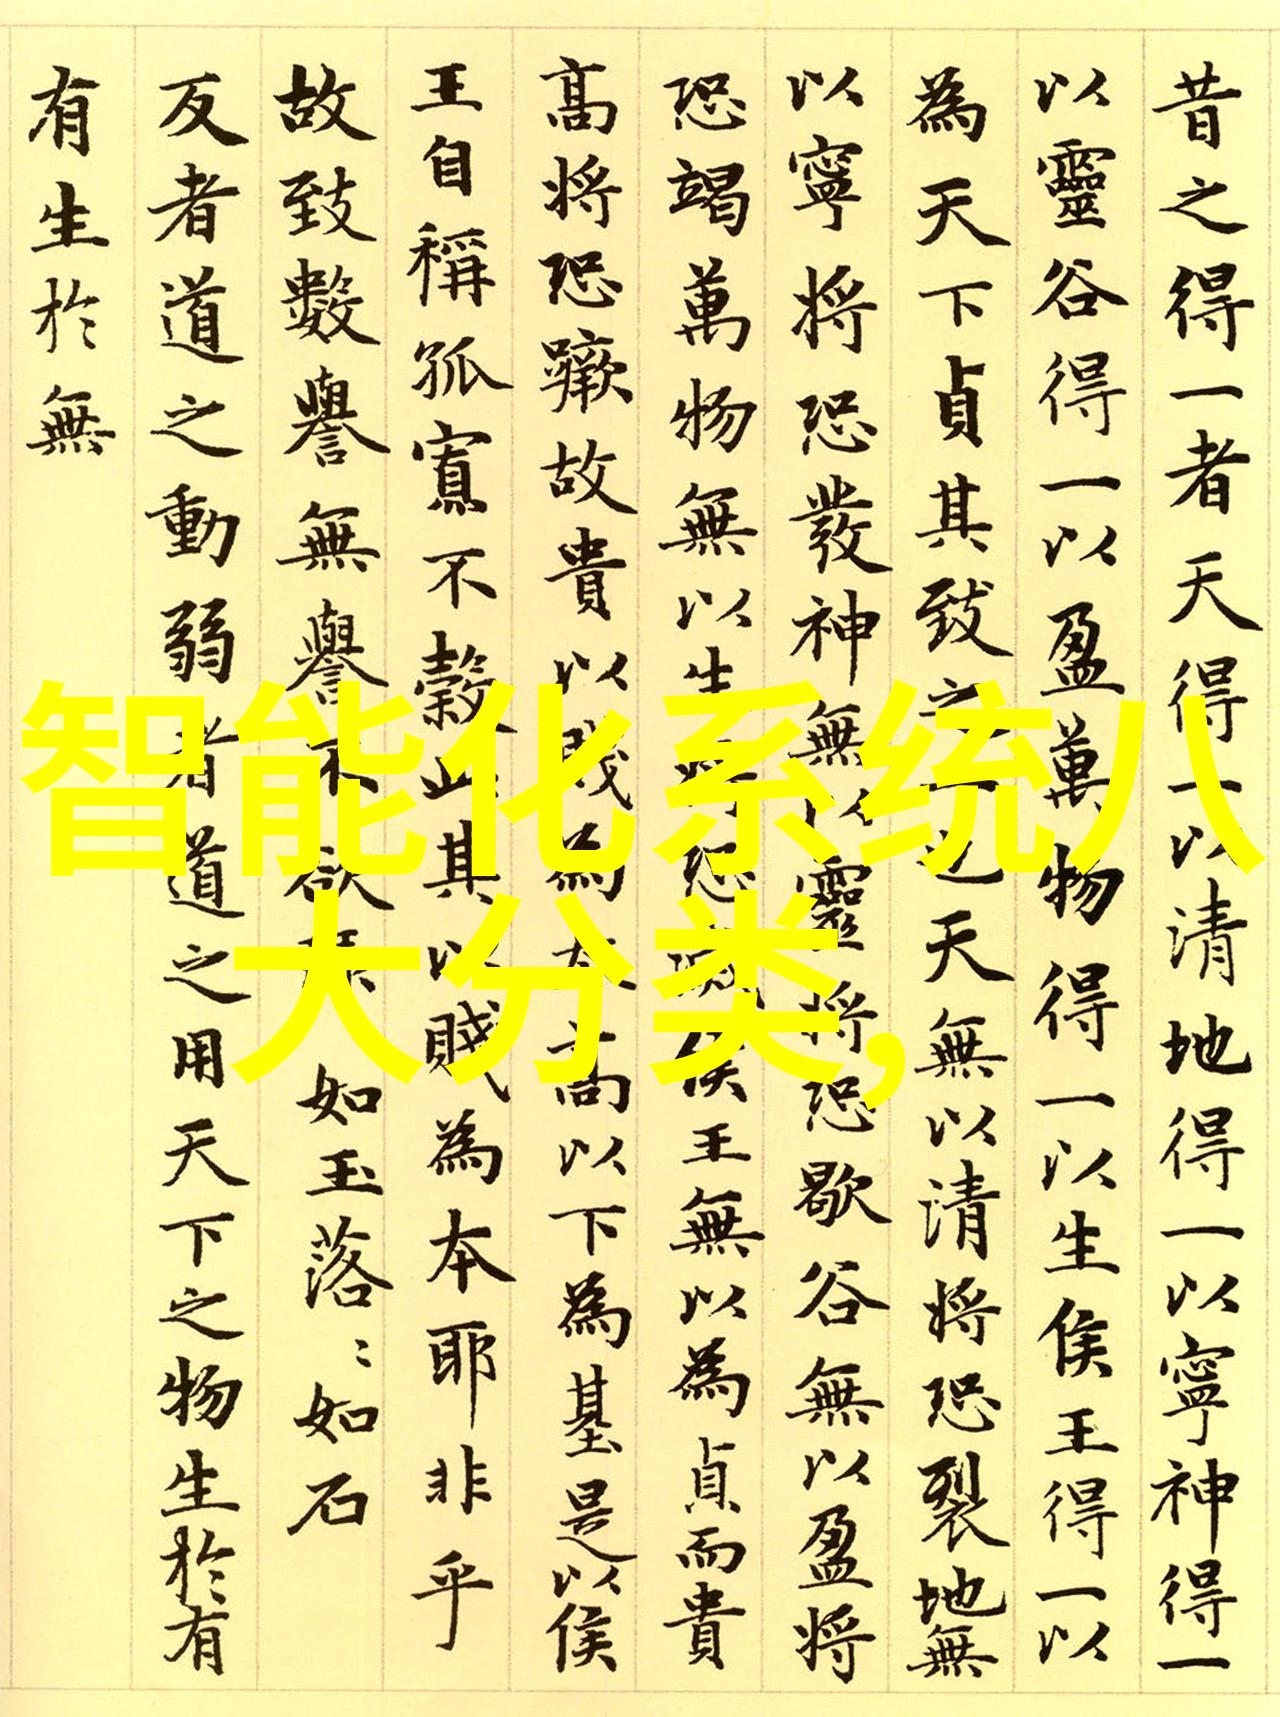 昔之得一者天得一以清地得一以寧神得一
以靈谷得一以盈萬物得一以生侯王得一以
為天下貞其致之一也天無以清將恐裂地無
以寧將恐發神無以靈將恐歇谷無以盈將
恐竭萬物無以生將恐滅侯王無以為貞而貴
高將恐蹶故貴以賤為本高以下為基是以侯
王自稱孤寡不穀此其以賤為本耶非乎
故致數譽無譽不欲如玉落〻如石
反者道之動弱者道之用天下之物生於有
有生於無
智能化系统八
大分类,